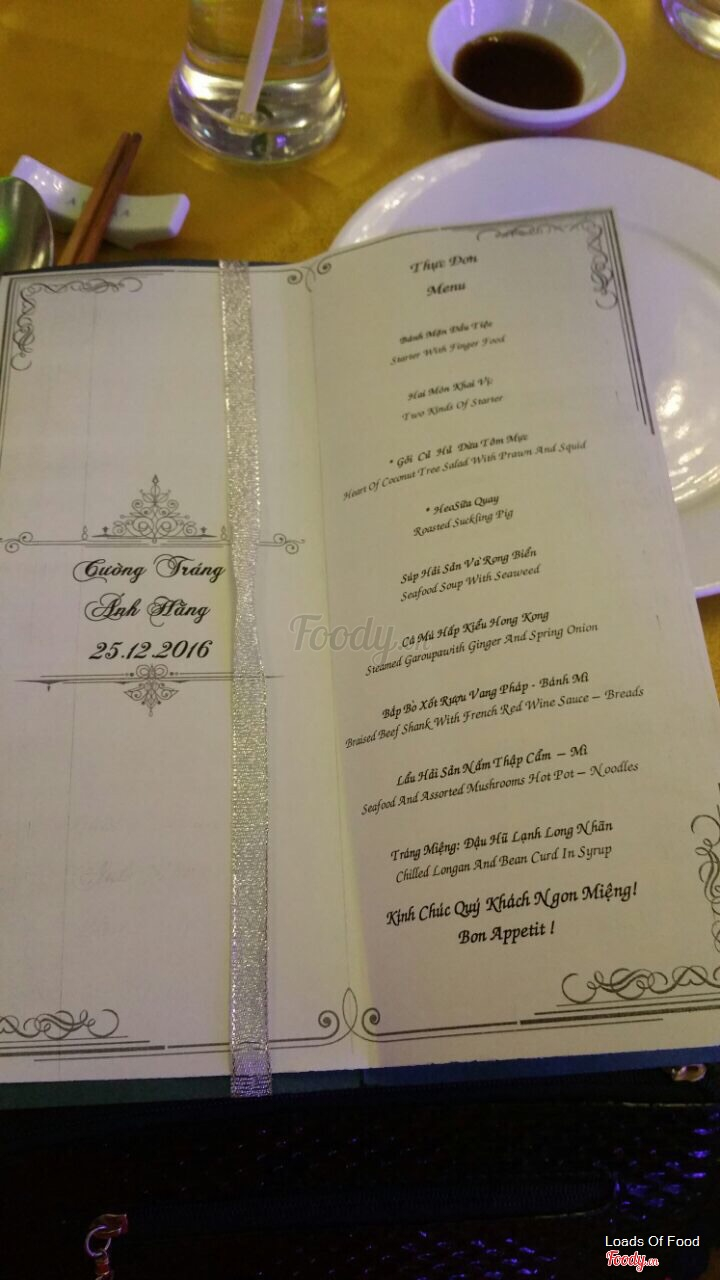 Cường Tráng
Ánh Hằng
25.12.2016
Thực Đơn
Menu
Bánh Mặn Đầu Tiệc
Starter With Finger Food
Hai Món Khai Vị
Two Kinds Of Starter
* Gỏi Củ Hủ Dừa Tôm Mực
Heart Of Coconut Tree Salad With Prawn And Squid
* HeoSữa Quay
Roasted Suckling Pig
Súp Hải Sản Và Rong Biển
Seafood Soup With Seaweed
Cá Mú Hấp Kiểu Hong Kong
Steamed Garoupawith Ginger And Spring Onion
Bắp Bò Xốt Rượu Vang Pháp - Bánh Mì
Braised Beef Shank With French Red Wine Sauce – Breads
Lẩu Hải Sản Nấm Thập Cẩm – Mì
Seafood And Assorted Mushrooms Hot Pot – Noodles
Tráng Miệng: Đậu Hũ Lạnh Long Nhãn
Chilled Longan And Bean Curd In Syrup
Kính Chúc Quý Khách Ngon Miệng!
Bon Appetit !
Foody.vn
Loads Of Food
Foody.vn